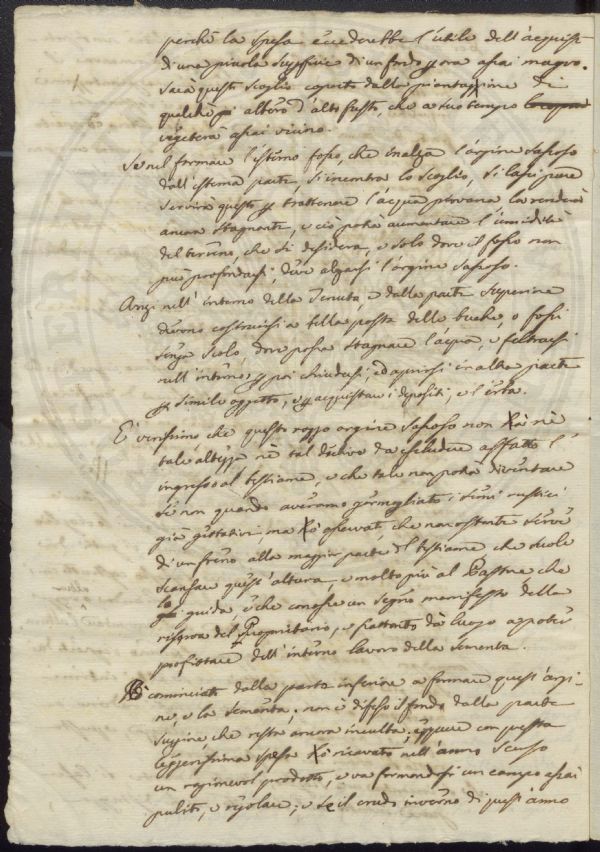 perchè la spesa eccederebbe l'utile dell'acquisto
di una piccola superficie di un fondo per ora assai magro.
Sarà questo scoglio coperto dalla piantagione di
qualche albero d'alto fusto, che a suo tempo
vegeterà assai vicino.
Se nel formare l'esterno fosso, che inalza l'argine sassoso
dall'esterna parte, s'incontra lo scoglio, si lasci pure
servirà questo per trattenere l'acqua piovana la renderà
ancora stagnante, e ciò potrà aumentare l'umidità
del terreno, che si desidera, e solo dove il fosso non
può profondarsi, deve alzarsi l'argine sassoso.
Anzi nell'interno della Tenuta, e dalla parte superiore
devono costruirsi a bella posta delle buche, o fossi
senza scolo, dove possa stagnare l'acqua, e feltrarsi
nell'interno, per poi chiudersi, ed aprirsi in altra parte
per simile oggetto, e per acquistare i depositi, e l'erba.
È verissimo che questo rozzo argine sassoso non ha nè
tale altezza nè tal declivo da escludere affatto l'
ingresso al bestiame, e che tale non potrà diventare
se non quando averanno germogliato i semi rustici
già gettativi, ma ho osservato, che nonostante serve
di un freno alla maggior parte del bestiame che suole
scansare quest'altura, e molto più al Pastore che
lo guida e che conosce un segno manifesto della
riserva del Proprietario, e frattanto dà luogo a poter
profittare dell'interno lavoro della sementa.
Ho cominciato dalla parte inferiore a formare quest'argi-
ne, e la sementa; non è difeso il fondo dalla parte
superiore, che resta ancora inculta; eppure con questa
leggerissima spesa ho ricavato nell'anno scorso
un ragionevol prodotto, e va formandosi un campo assai
pulito, e regolare; e se il crudo inverno di quest'anno